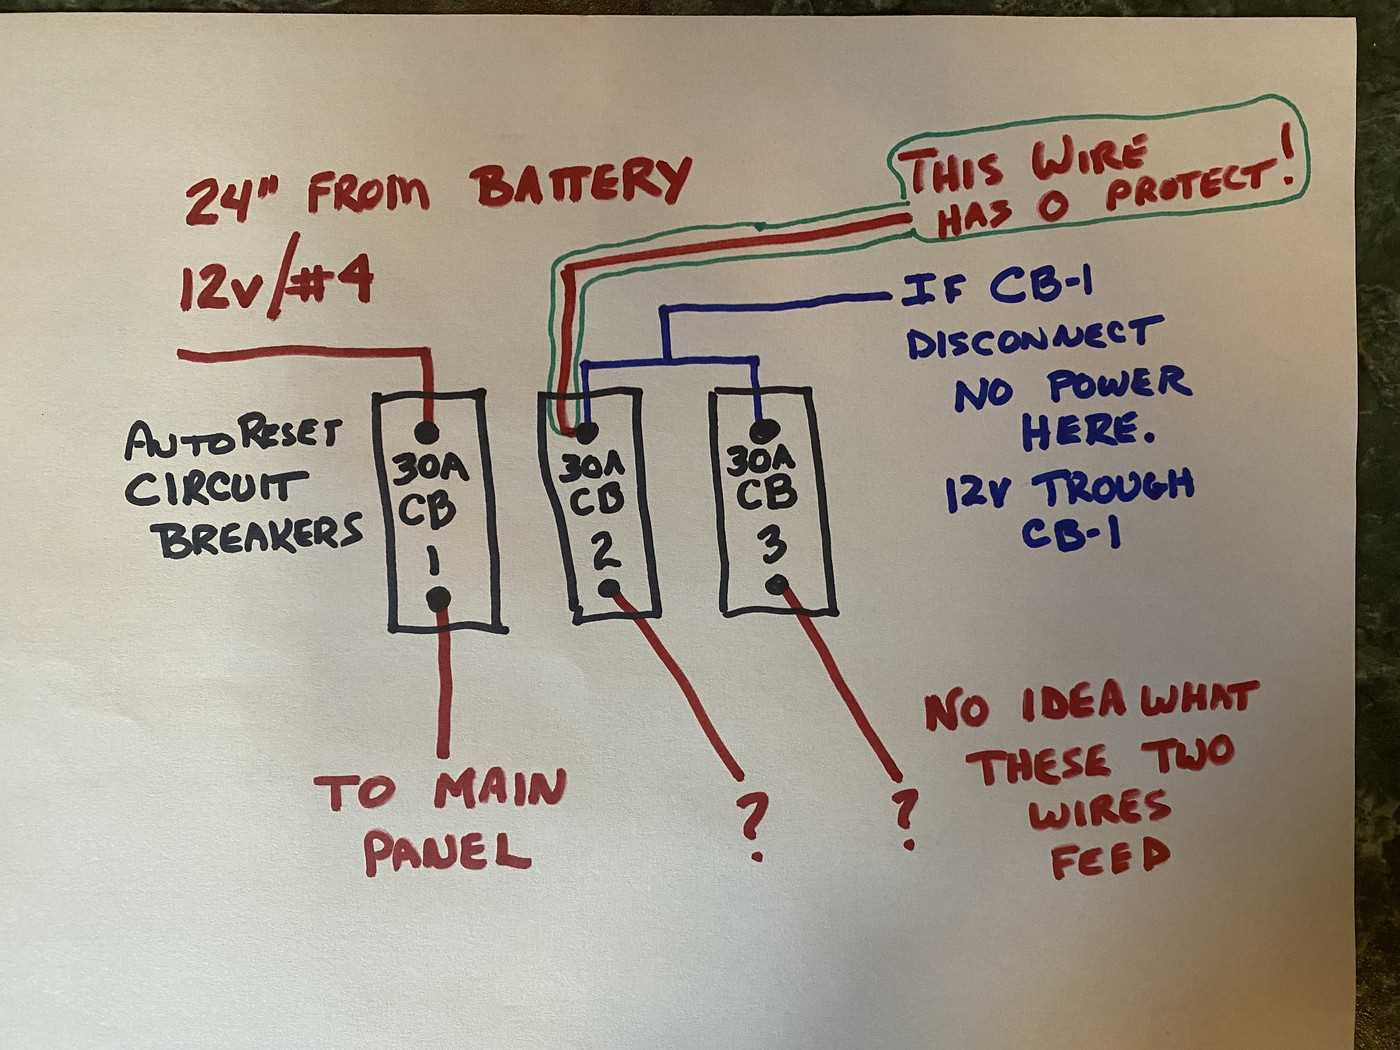 24" FROM BATTERY
12v/#4
THIS WIRE
HAS 0 PROTECT!
IF CB-1
DISCONNECT
NO POWER
HERE.
12V TROUGH
CB-1
AUTO RESET
CIRCUIT
BREAKERS
30A
CB
1
30A
CB
2
30A
CB
3
TO MAIN
PANEL
?
?
NO IDEA WHAT
THESE TWO
WIRES
FEED